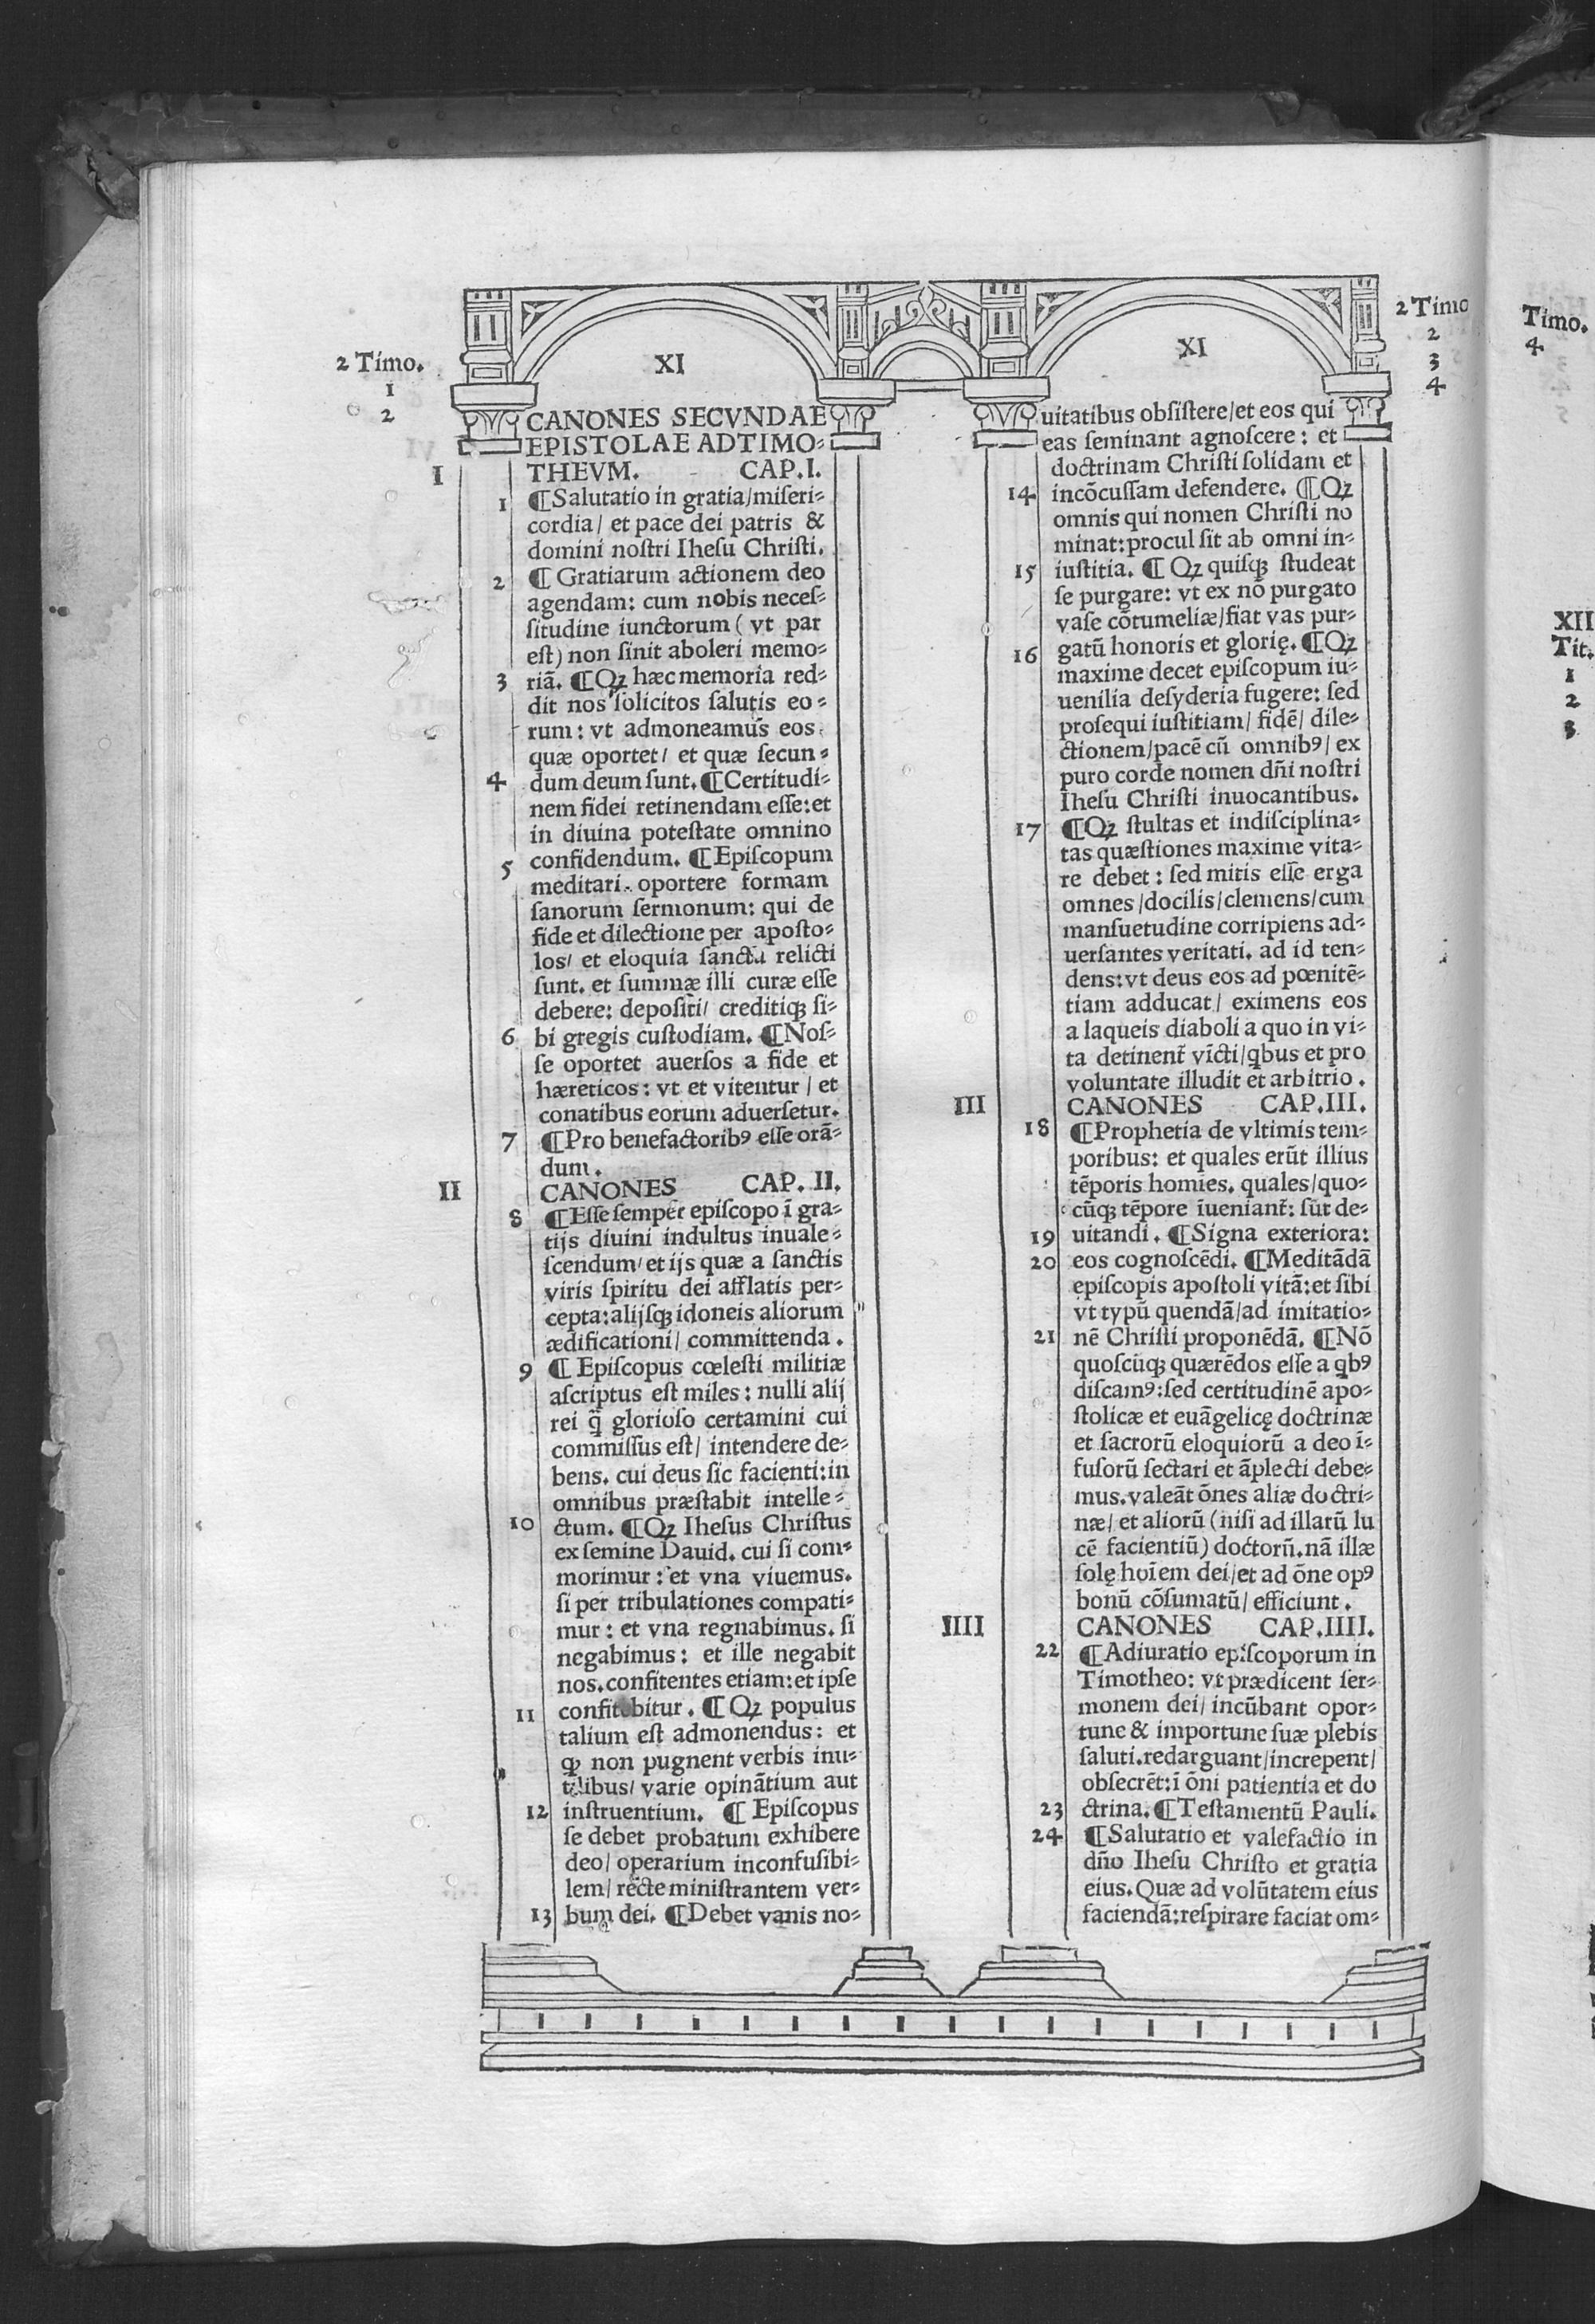 2 Timo.
1
2
XI
CANONES SECVNDAE
EPISTOLAE AD TIMO⸗
I THEVM. CAP.I.
1 ¶Salutatio in gratia/miseri⸗
cordia/ et pace dei patris &
domini nostri Ihesu Christi.
2 ¶ Gratiarum actionem deo
agendam: cum nobis neces⸗
situdine iunctorum (vt par
est) non sinit aboleri memo⸗
3 riā. ¶Qꝫ hæc memoria red⸗
dit nos solicitos salutis eo⸗
rum: vt admoneamus eos
quæ oportet/ et quæ secun⸗
4 dum deum sunt. ¶Certitudi⸗
nem fidei retinendam esse: et
in diuina potestate omnino
5 confidendum. ¶Episcopum
meditari. oportere formam
sanorum sermonum: qui de
fide et dilectione per aposto⸗
los/ et eloquia sancta relicti
sunt. et summæ illi curæ esse
debere: depositi/ creditiqꝫ si⸗
6 bi gregis custodiam. ¶Nos⸗
se oportet auersos a fide et
hæreticos: vt et vitentur/ et
conatibus eorum aduersetur.
7 ¶Pro benefactoribꝰ esse orā⸗
dum.
II CANONES CAP. II.
8 ¶Esse semper episcopo ī gra⸗
tijs diuini indultus inuale⸗
scendum/ et ijs quæ a sanctis
viris spiritu dei afflatis per⸗
cepta: alijsqꝫ idoneis aliorum
ædificationi/ committenda.
9 ¶ Episcopus cœlesti militiæ
ascriptus est miles: nulli alij
rei q̄ glorioso certamini cui
commissus est/ intendere de⸗
bens. cui deus sic facienti: in
omnibus præstabit intelle⸗
10 ctum. ¶Qꝫ Ihesus Christus
ex semine Dauid. cui si com⸗
morimur: et vna viuemus.
si per tribulationes compati⸗
mur: et vna regnabimus. si
negabimus: et ille negabit
nos. confitentes etiam: et ipse
11 confitebitur. ¶ Qꝫ populus
talium est admonendus: et
qꝫ non pugnent verbis inu⸗
tilibus/ varie opinātium aut
12 instruentium. ¶ Episcopus
se debet probatum exhibere
deo/ operarium inconfusibi⸗
lem/ recte ministrantem ver⸗
13 bum dei. ¶Debet vanis no⸗
2 Timo
2
3
4
XI
uitatibus obsistere/et eos qui
eas seminant agnoscere: et
doctrinam Christi solidam et
14 incōcussam defendere. ¶Qꝫ
omnis qui nomen Christi no
minat: procul sit ab omni in⸗
15 iustitia. ¶ Qꝫ quisqꝫ studeat
se purgare: vt ex nō purgato
vase cōtumeliæ/fiat vas pur⸗
16 gatū honoris et glorię. ¶Qꝫ
maxime decet episcopum iu⸗
uenilia desyderia fugere: sed
prosequi iustitiam/ fidē/ dile⸗
ctionem/pacē cū omnibꝰ/ ex
puro corde nomen dn̄i nostri
Ihesu Christi inuocantibus.
17 ¶Qꝫ stultas et indisciplina⸗
tas quæstiones maxime vita⸗
re debet: sed mitis esse erga
omnes /docilis/clemens/cum
mansuetudine corripiens ad⸗
uersantes veritati. ad id ten⸗
dens: vt deus eos ad pœnitē⸗
tiam adducat/ eximens eos
a laqueis diaboli a quo in vi⸗
ta detinent̄ victi/qbus et pro
voluntate illudit et arbitrio.
III CANONES CAP.III.
18 ¶Prophetia de vltimis tem⸗
poribus: et quales erūt illius
tēporis homies. quales/quo⸗
cūqꝫ tēpore īueniant̄: sūt de⸗
19 uitandi. ¶Signa exteriora:
20 eos cognoscēdi. ¶Meditādā
episcopis apostoli vitā: et sibi
vt typū quendā/ad imitatio⸗
21 nē Christi proponēdā. ¶Nō
quoscūqꝫ quærēdos esse a qbꝰ
discamꝰ: sed certitudinē apo⸗
stolicæ et euāgelicę doctrinæ
et sacrorū eloquiorū a deo ī⸗
fusorū sectari et āplecti debe⸗
mus. valeāt ōnes aliæ doctri⸗
næ/ et aliorū (nisi ad illarū lu
cē facientiū) doctorū. nā illæ
solę hoīem dei/et ad ōne opꝰ
bonū cōsumatū/ efficiunt.
IIII CANONES CAP.IIII.
22 ¶Adiuratio episcoporum in
Timotheo: vt prædicent ser⸗
monem dei/ incūbant opor⸗
tune & importune suæ plebis
saluti. redarguant/increpent/
obsecrēt: ī ōni patientia et do
23 ctrina. ¶Testamentū Pauli.
24 ¶Salutatio et valefactio in
dn̄o Ihesu Christo et gratia
eius. Quæ ad volūtatem eius
faciendā: respirare faciat om⸗
Timo.
4
XII
Tit.
1
2
3